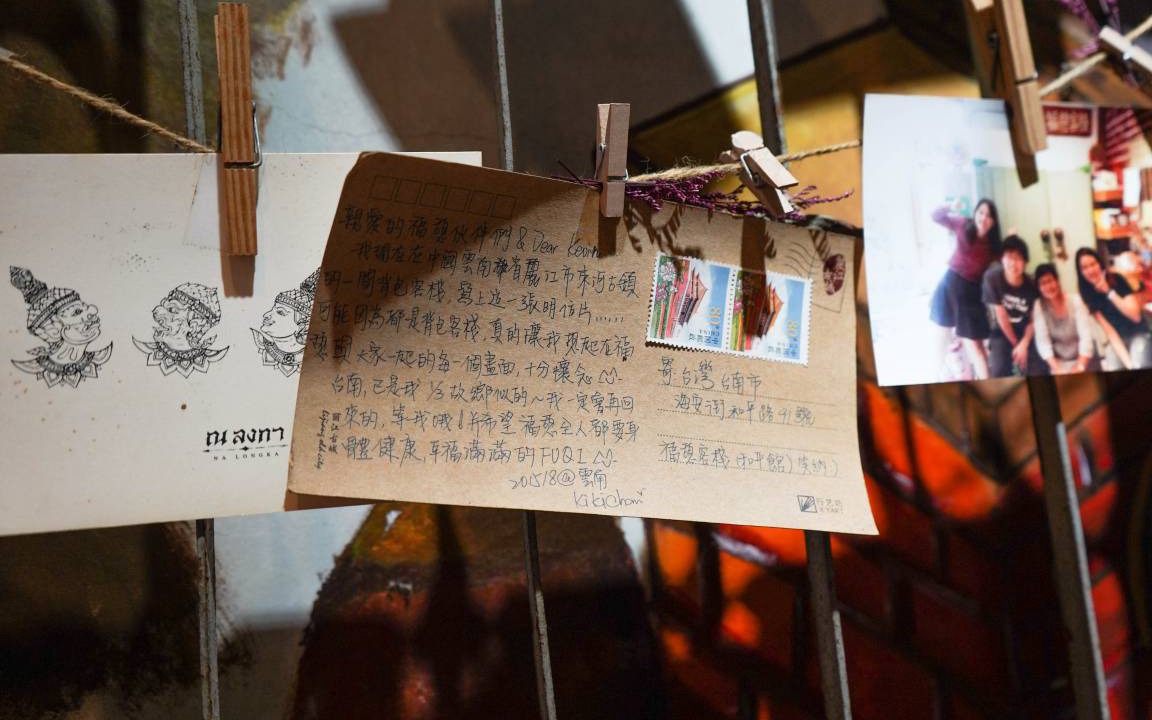 ณ ลงกา
NA LONGKA
親愛的福憩伙伴們 & Dear Kevin
我現在在中國雲南省麗江市束河古鎮
的一間背包客棧，寫上這一張明信片......
可能因為都是背包客棧，真的讓我想起在福
憩與大家一起的每一個畫面，十分懷念
台南，已是我 1/3 故鄉似的～我一定會再回
來的，等我哦！并希望福憩全人都要身
體健康，幸福滿滿的 FUQI
2015/8@雲南
Kiki Chan
80
CHINA
中国邮政
80
CHINA
中国邮政
寄：台灣台南市
海安街和平路41號
福憩客棧（和平館）